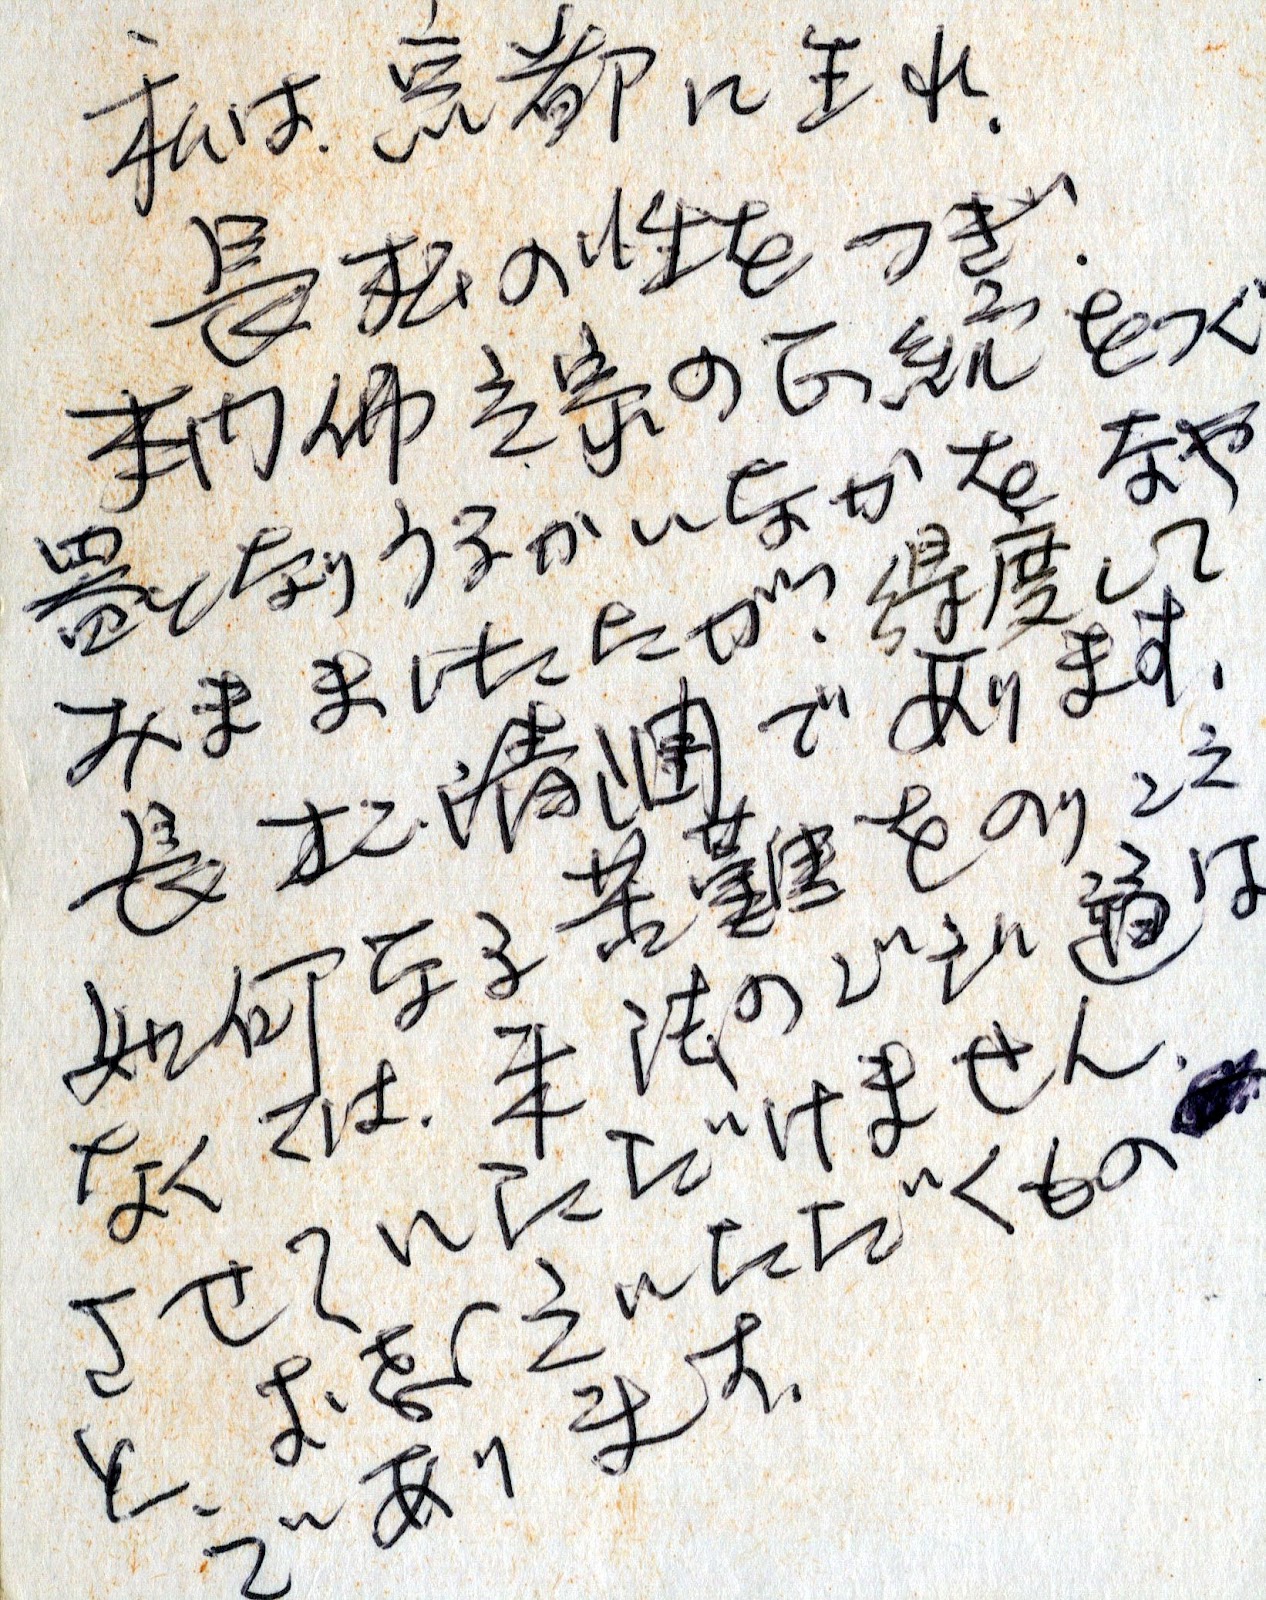 私は、京都に生れ、
長松の性をつぎ、
本門佛立宗の正統をつぐ
となりうるかいなかをなや
みまましたたが、得度して
長松清潤であります、
如何なる苦難をのりこえ
なくては、本法のご弘通は
させていただけません、
と、おもらえいただくもの
でありますす、